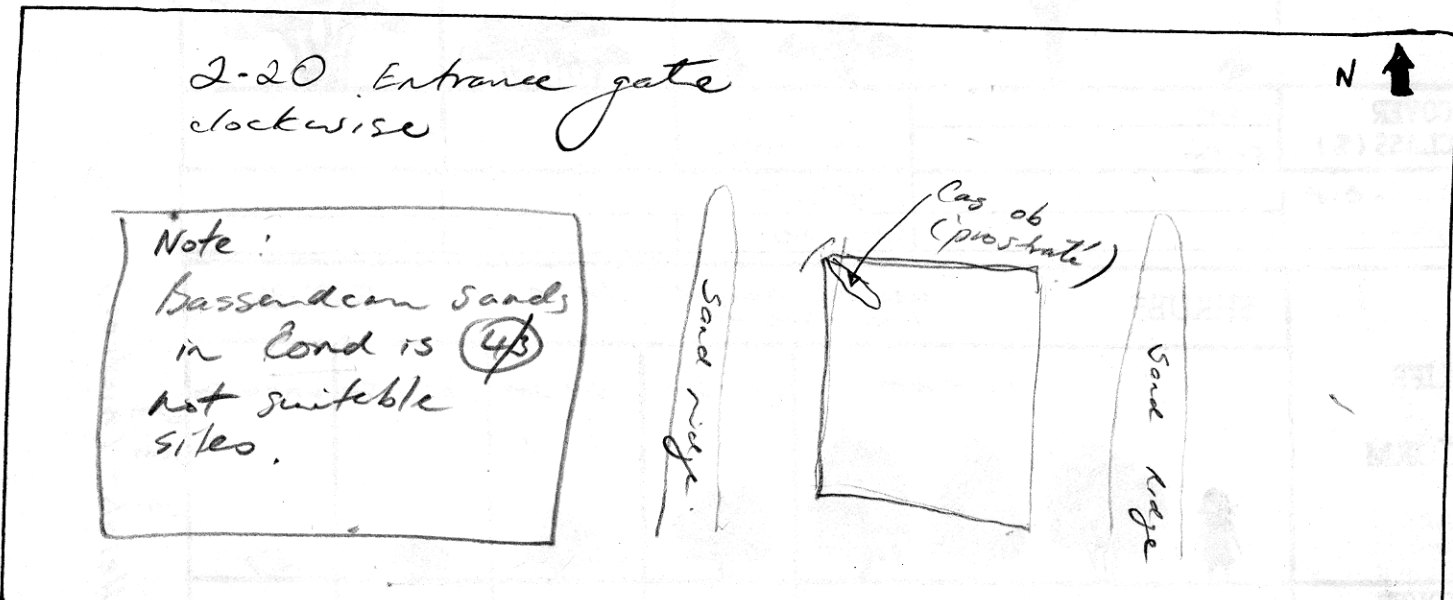 2-20 Entrance gate
clockwise
N
Note :
Bassendean sands
in Cond is 4/3
not suitable
sites.
Sand ridge.
Cas ob
(prostrate)
Sand ridge